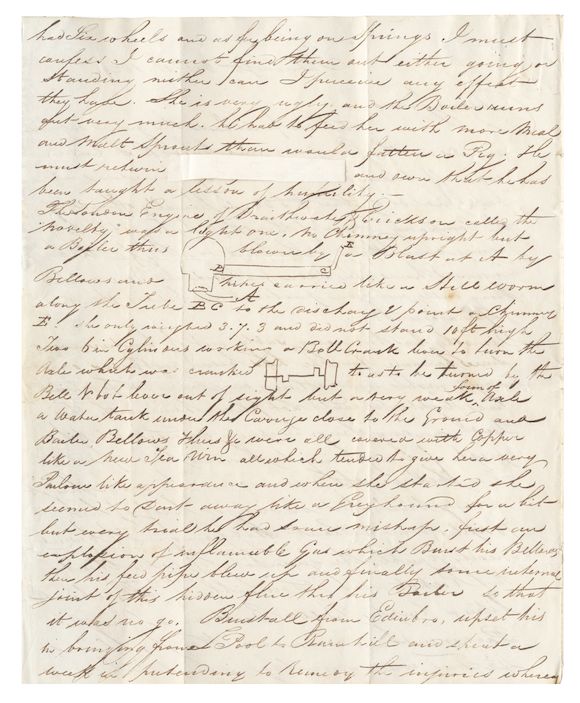 had Six wheels and as for being on Springs I must
confess I cannot find them out either going or
Standing neither can I perceive any effect
they have. She is very ugly and the Boiler runs
out very much. he had to feed her with more Meal
and Malt Sprouts than would fatten a Pig. He
must return and own that he has
been taught a lesson of humility. —
The London Engine of Braithwaite & Ericksson called the
Novelty was a light one, no Chimney upright but
a Boiler thus blown by a Blast at A by
E
B C
A
Bellows and pipes carried like a Still worm
along the Tube BC to the discharge point or Chimney
E. She only weighed 3.7.3 and did not stand 10 ft high
Two 6 in Cylinders working a Bell Crank lever to turn the
Axle which was cranked thus to be turned by the
Bell & bot lever out of sight but a very weak form of Axle
a Water tank under the Carriage close to the Ground and
Boiler Bellows Flues &c were all covered with Copper
like a New Tea Urn all which tended to give her a very
Parlour like appearance and when she started she
seemed to dart away like a Greyhound for a bit
but every trial he had some mishap, first an
explosion of inflammable Gas which Burst his Bellows
then his feed pipe blew up and finally some internal
joint of this hidden flue thro his Boiler so that
it was no go. Burstall from Edinbro, upset his
in bringing from L Pool to Rainhill and spent a
week in pretending to Remedy the injuries whereas